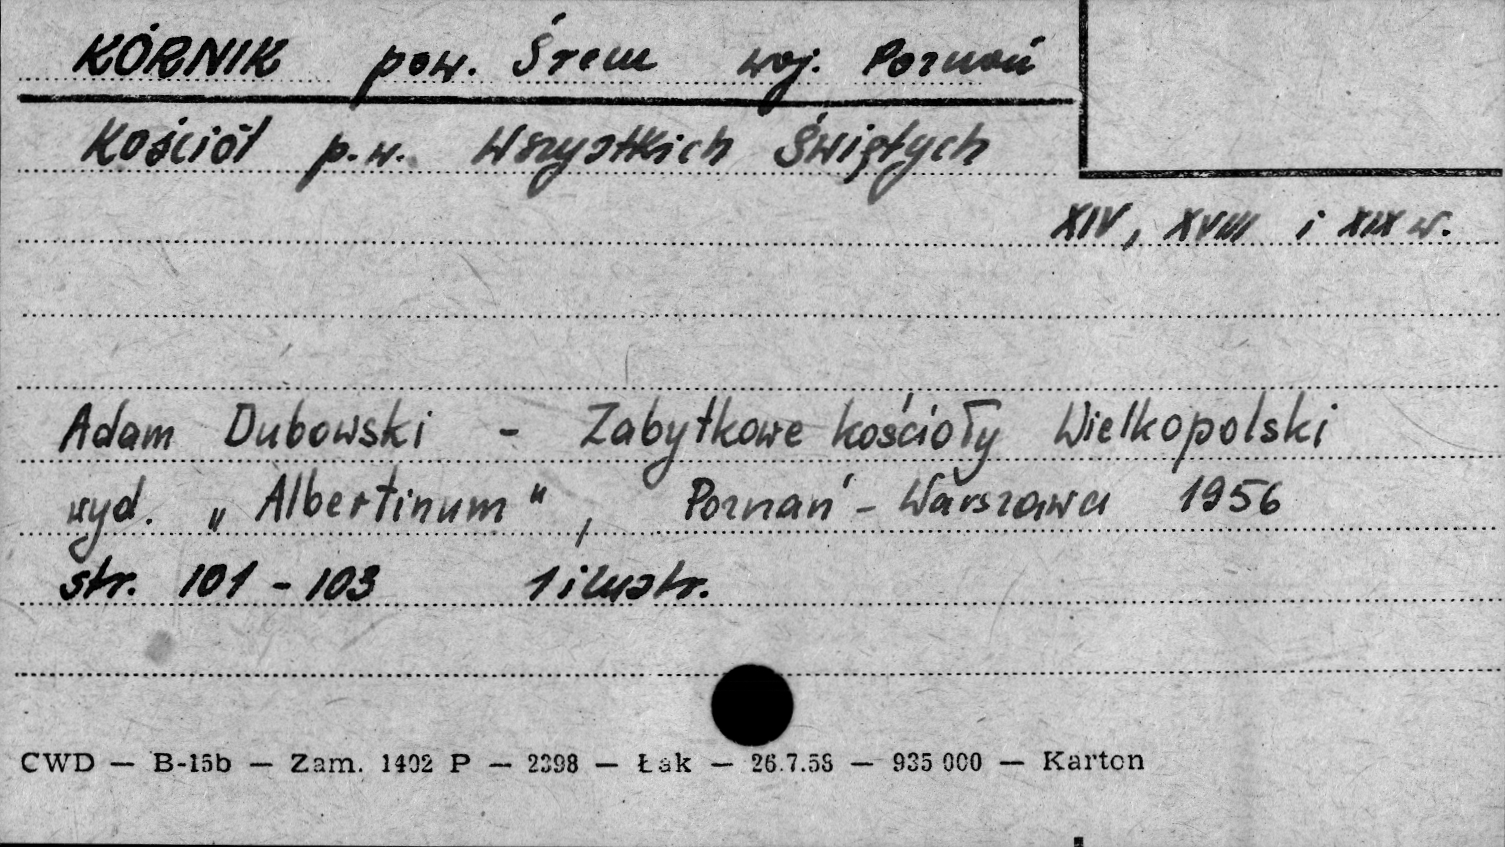 KÓRNIK pow. Śrem woj. Poznań
Kościół p.w. Wszystkich Świętych
XIV, XVIII i XIX w.
Adam Dubowski - Zabytkowe kościoły Wielkopolski
wyd. „Albertinum", Poznań - Warszawa 1956
str. 101 - 103 1 ilustr.
CWD — B-15b — Zam. 1402 P — 2398 — Łak — 26.7.58 — 935 000 — Karton